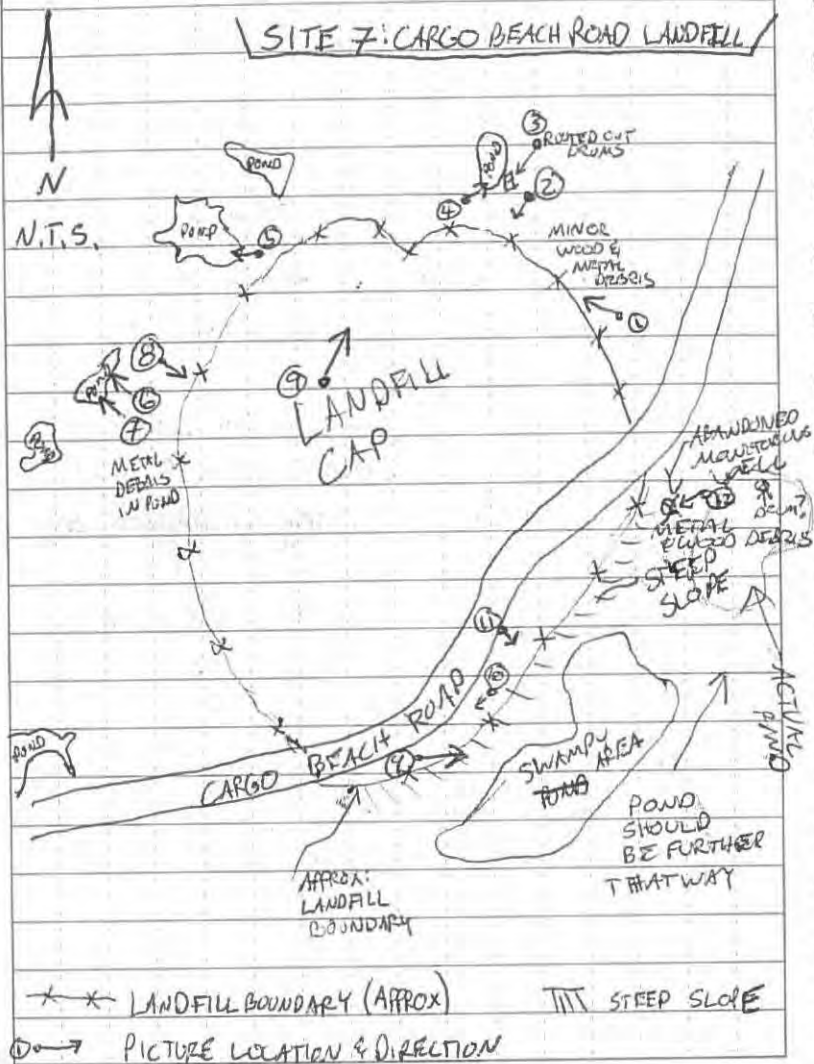 SITE 7: CARGO BEACH ROAD LANDFILL
N
N.T.S.
POND
POND
POND
③
ROUTED OUT
DRUMS
②
④
⑤
MINOR
WOOD &
METAL
DEBRIS
①
⑧
POND
⑥
⑦
METAL
DEBRIS
IN POND
⑨
LANDFILL
CAP
ABANDONED
MONITORING
WELL
⑫
DRUM?
METAL
& WOOD DEBRIS
STEEP
SLOPE
⑪
⑩
ACTUAL
POND
POND
CARGO BEACH ROAD
⑨
SWAMPY AREA
POND
POND
SHOULD
BE FURTHER
THAT WAY
APPROX.
LANDFILL
BOUNDARY
LANDFILL BOUNDARY (APPROX)
STEEP SLOPE
① PICTURE LOCATION & DIRECTION